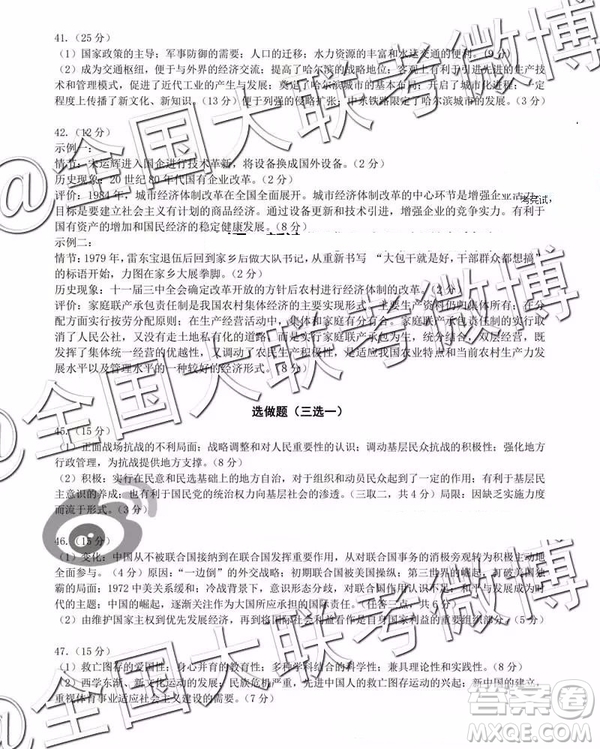 41.（25 分）
（1）国家政策的主导；军事防御的需要；人口的迁移；水力资源的丰富和水送交通的便利。（9 分）
（2）成为交通枢纽，便于与外界的经济交流；提高了哈尔滨的战略地位；客观上有利于引进先进的生产技
术和管理模式，促进了近代工业的产生与发展；奠定了哈尔滨城市的基本布局；开启了城市化进程；一定
程度上传播了新文化、新知识。（13 分）便于列强的侵略扩张；中东铁路限定了哈尔滨城市的发展。（3 分）
42.（12 分）
示例一：
情节：宋运辉进入国企进行技术革新，将设备换成国外设备。（2 分）
历史现象：20 世纪 80 年代国有企业改革。（2 分）
评价：1984 年，城市经济体制改革在全国全面展开。城市经济体制改革的中心环节是增强企业活力，
目标是要建立社会主义有计划的商品经济。通过更新设备和技术引进，增强了企业的竞争实力。有利于
国有资本的增加和国民经济的稳定健康发展。（8 分）
示例二：
情节：1979 年，雷东宝退伍后回到家乡后做大队书记，从重新书写 “大包干就是好，干部群众都想搞”
的标语开始，力图在家乡大展拳脚。（2 分）
历史现象：十一届三中全会确定改革开放的方针后农村进行的经济体制改革。（2 分）
评价：家庭联产承包责任制是我国农村集体经济的主要实现形式。主要生产资料仍归集体所有；在分
配方面实行按劳分配原则；在生产经营活动中，集体和家庭有分有合。家庭联产承包责任制的实行取
消了人民公社，又没有走土地私有化的道路，而是实行家庭联产承包为主，统分结合，双层经营，既
发挥了集体统一经营的优越性，又调动了农民生产积极性，是适应我国农业特点和当前农村生产力发
展水平以及管理水平的一种较好的经济形式。（8 分）
选做题（三选一）
45.（15 分）
（1）正面战场抗战的不利局面；战略调整和对人民重要性的认识；调动基层民众抗战的积极性；强化地方
行政管理，为抗战提供地方支撑。（8 分）
（2）积极：实行的是在民意和民选基础上的地方自治，从而调动民众参与抗日救亡；有利于中国基层民
主意识的养成；也有利于国民党的统治权力向基层社会的渗透。（三取二，共 4 分）局限：因缺乏实施力度
而流于形式。（3 分）
46.（15 分）
（1）变化：中国从不被联合国接纳到在联合国发挥重要作用，从对联合国事务的消极旁观转为积极主动地
全面参与。（4 分）原因：“一边倒”的外交战略；初期联合国被美国操纵；第三世界的崛起；打破美国独
霸的局面；1972 中美关系缓和；冷战背景下，意识形态分歧，对联合国作用认识不足；和平与发展的时代
主题；中国的崛起，逐渐关注在大国所应尽的义务和责任。（任答三点，6 分）
（2）由维护国家主权到优先发展经济，再由自身的国家利益到兼顾世界利益的重要性。（5 分）
47.（15 分）
（1）救亡图存的爱国性；身心一统的发展性；多种学科结合的科学性；兼具理论性和实践性。（8 分）
（2）西学东渐、新文化运动的发展；民族危机严重，先进中国人的救亡图存运动的兴起；新中国的建立，
重视体育事业适应社会主义建设的需要。（7 分）
@全国大联考微博
@全国大联考微博
@全国大联考微博
答案圈
MXQE.COM